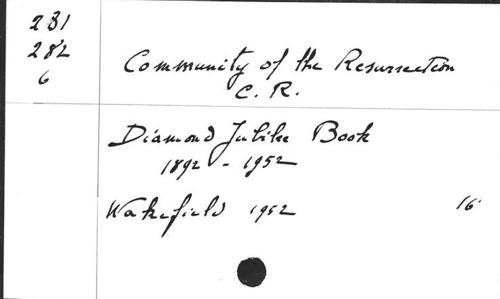 231
282
6
Community of the Resurrection
C. R.
Diamond Jubilee Book
1892 - 1952
Wakefield 1952 16